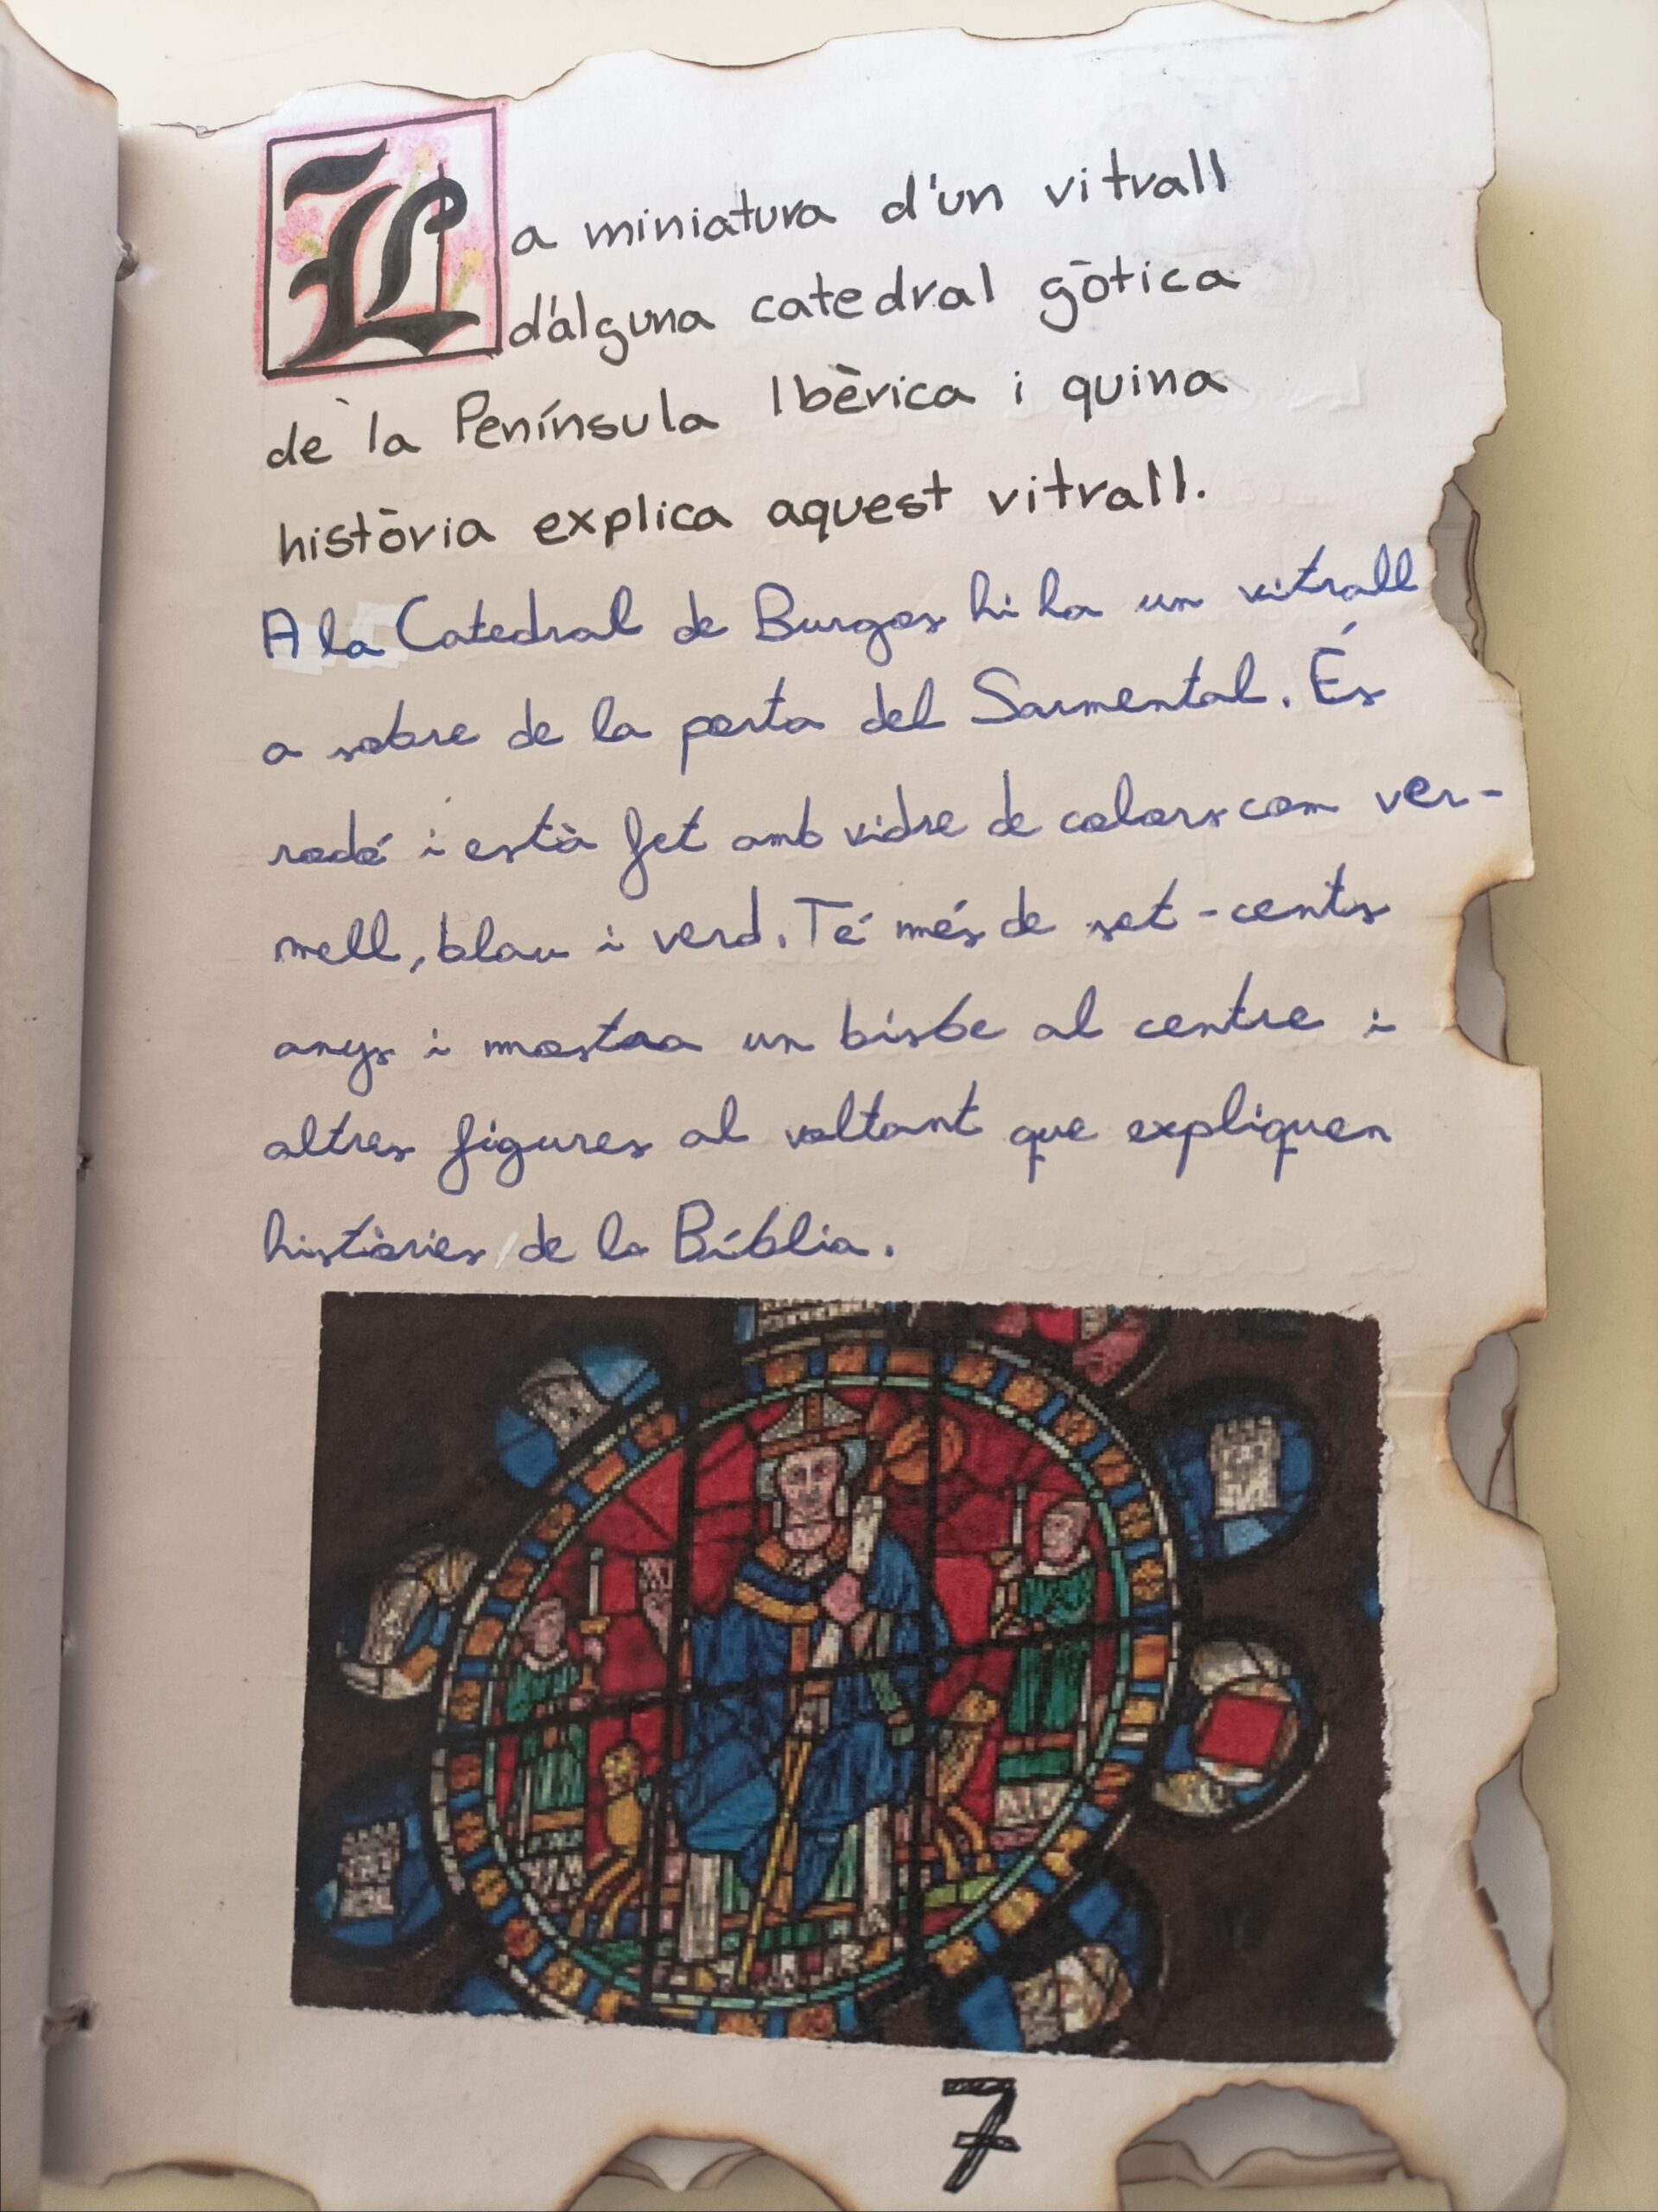 La miniatura d'un vitrall
d'alguna catedral gòtica
de la Península Ibèrica i quina
història explica aquest vitrall.
A la Catedral de Burgos hi ha un vitrall
a sobre de la porta del Sarmental. És
rodó i està fet amb vidre de colors com ver-
mell, blau i verd. Té més de set-cents
anys i mostra un bisbe al centre i
altres figures al voltant que expliquen
històries de la Bíblia.
7